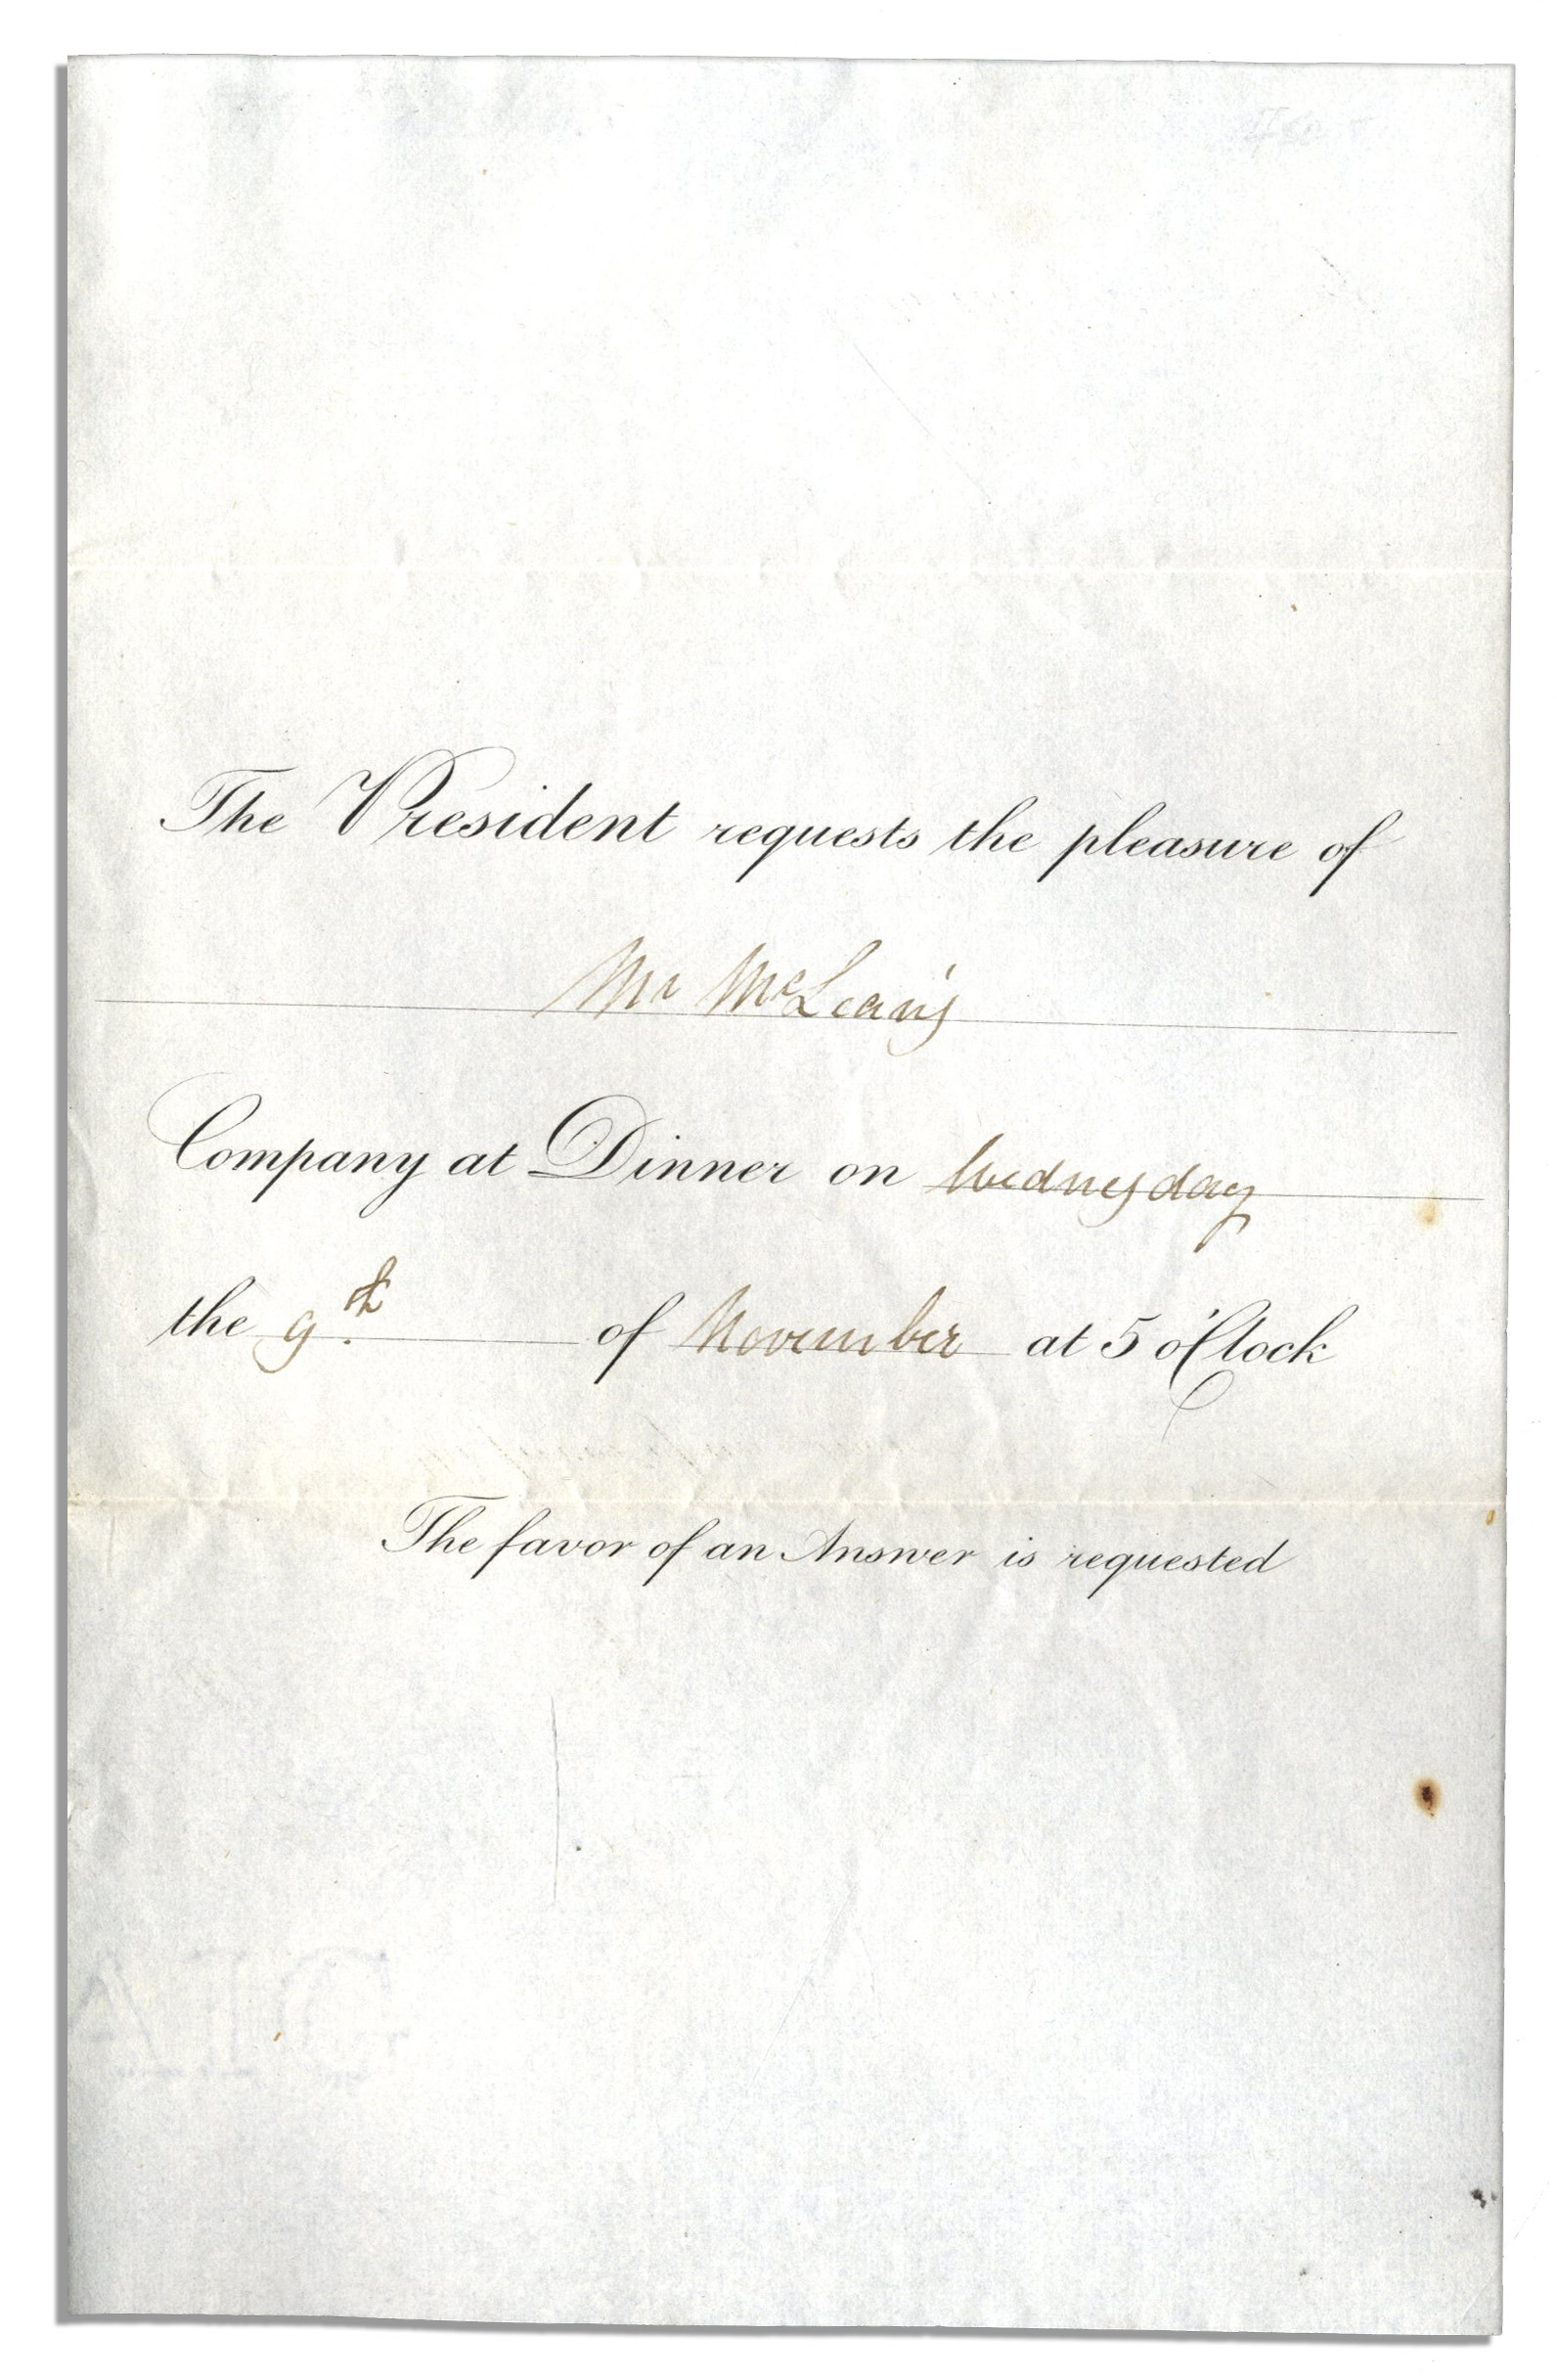 The President requests the pleasure of
Mr McLean's
Company at Dinner on Wednesday
the 9th of November at 5 o'Clock
The favor of an Answer is requested